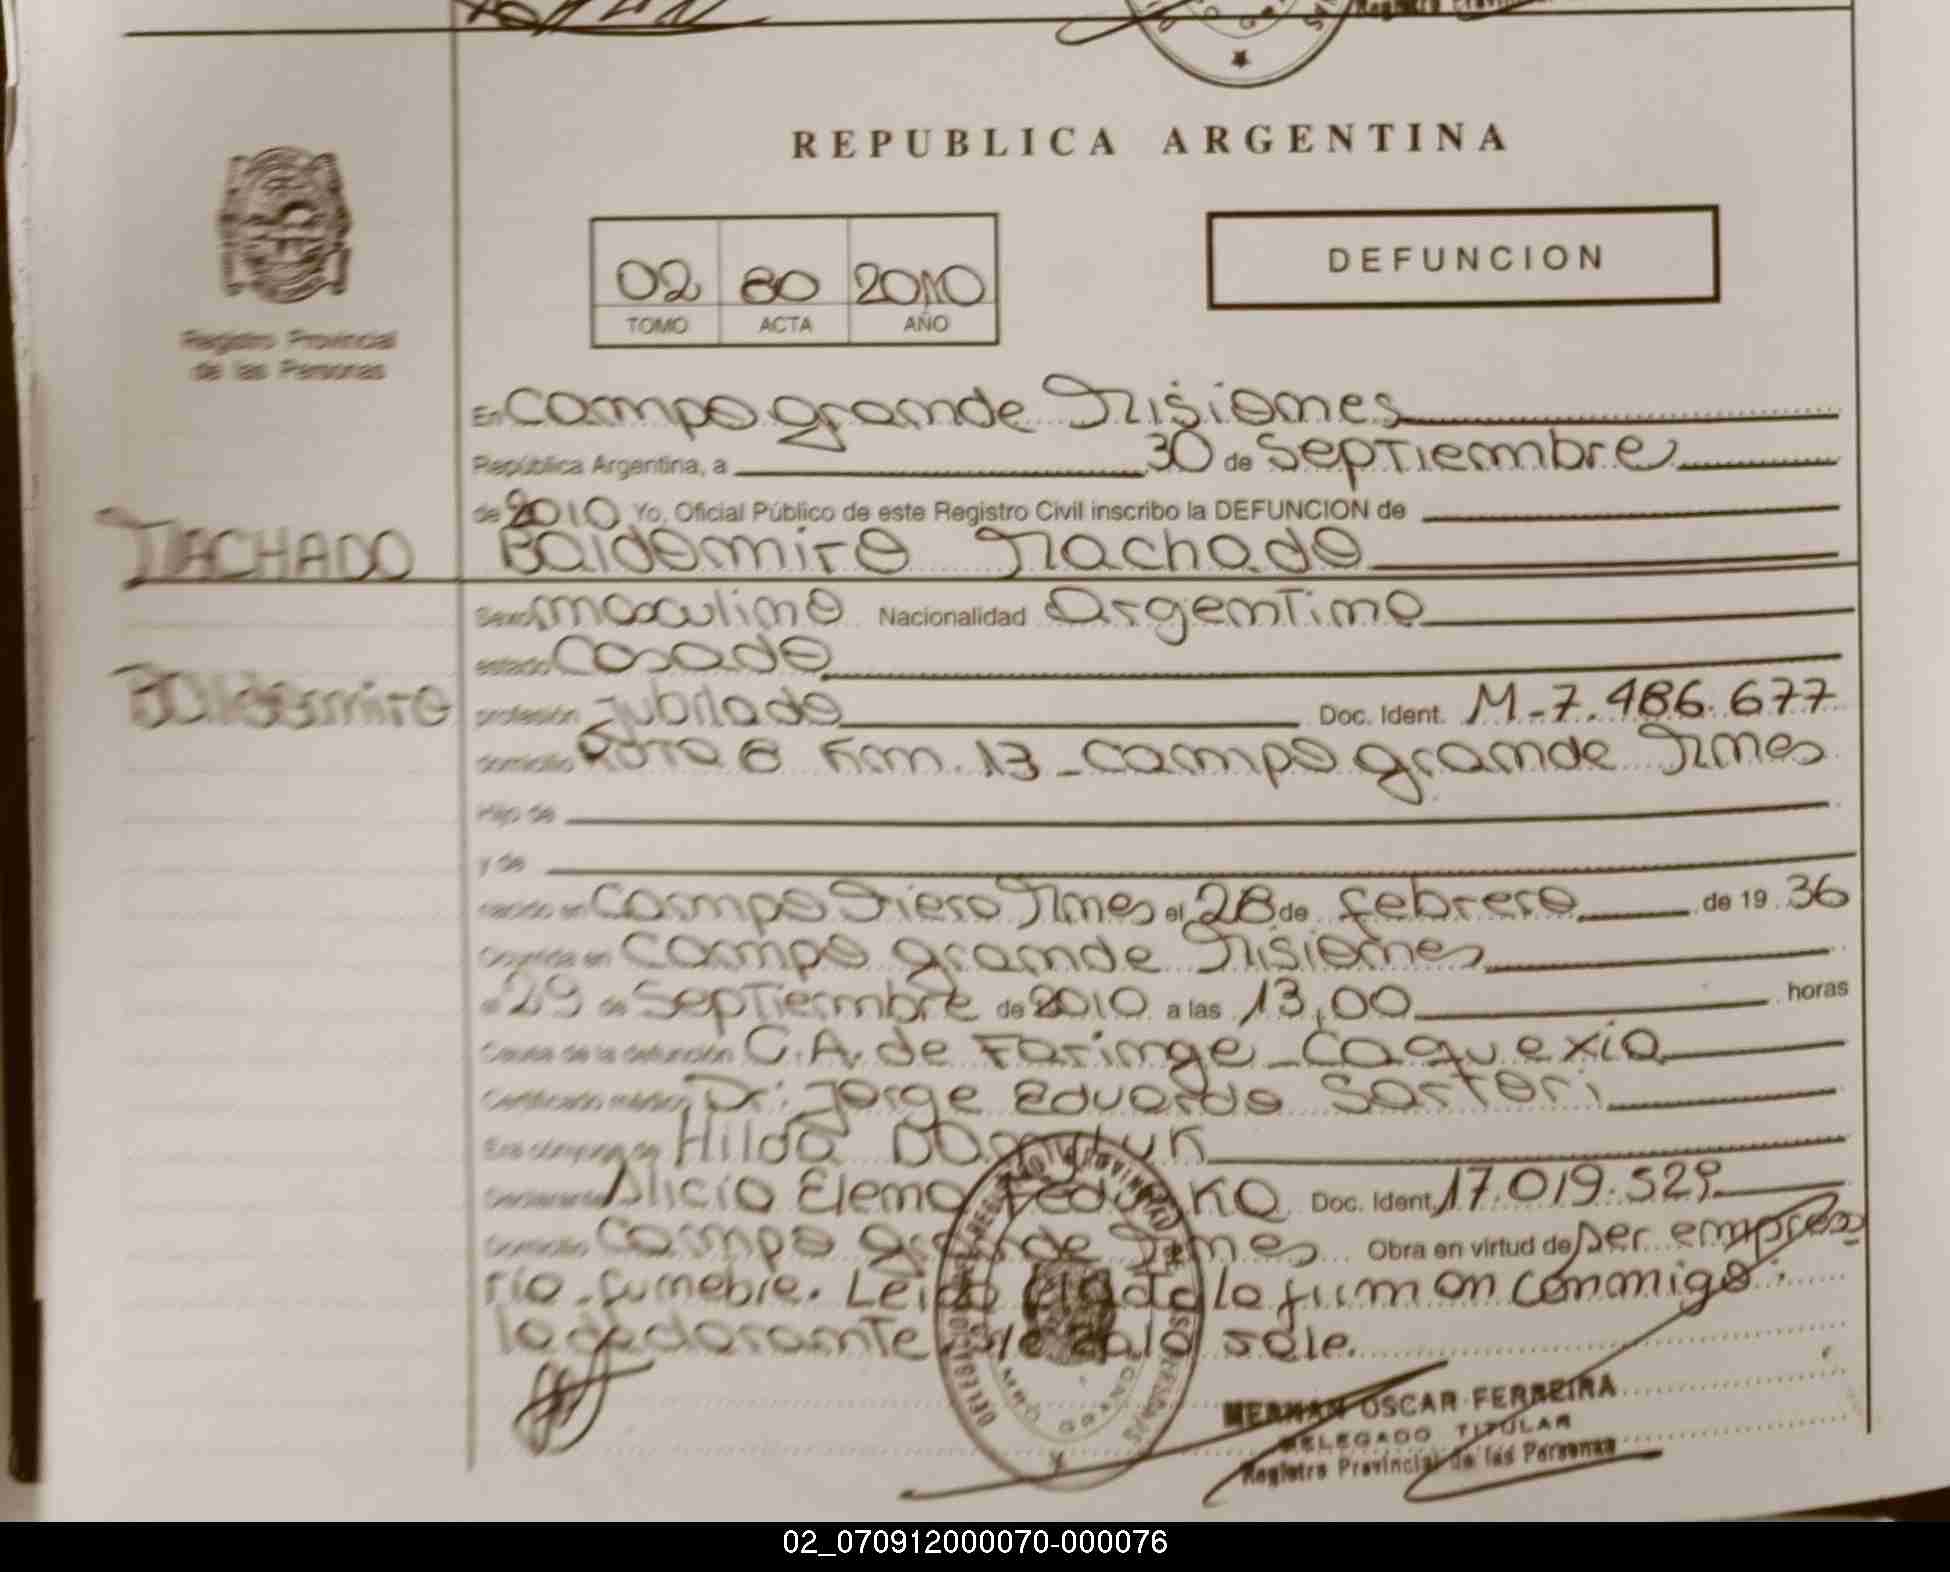 REPUBLICA ARGENTINA
Registro Provincial
de las Personas
02 80 2010
TOMO ACTA AÑO
DEFUNCION
MACHADO
Baldomiro
En Campo grande Misiones
República Argentina, a 30 de Septiembre
de 2010 Yo, Oficial Público de este Registro Civil inscribo la DEFUNCION de
Baldomiro Machado
Sexo masculino Nacionalidad Argentino
estado Casado
profesión Jubilado Doc. Ident. M-7.486.677
domicilio Ruta 8 Km. 13 - Campo grande Mnes
Hijo de
y de
nacido en Campo Viera Mnes el 28 de febrero de 1936
Ocurrida en Campo grande Misiones
el 29 de Septiembre de 2010 a las 13,00 horas
Causa de la defunción C.A. de Faringe - Caquexia
Certificado médico Dr. Jorge Eduardo Sartori
Era cónyuge de Hilda
Declarante Alicia Elena Doc. Ident. 17.019.529
Domicilio Campo grande Mnes Obra en virtud de ser empresa
rio funebre. Leida el acta la firman conmigo
la declarante sole.
HERNAN OSCAR FERREIRA
DELEGADO TITULAR
Registro Provincial de las Personas
02_070912000070-000076